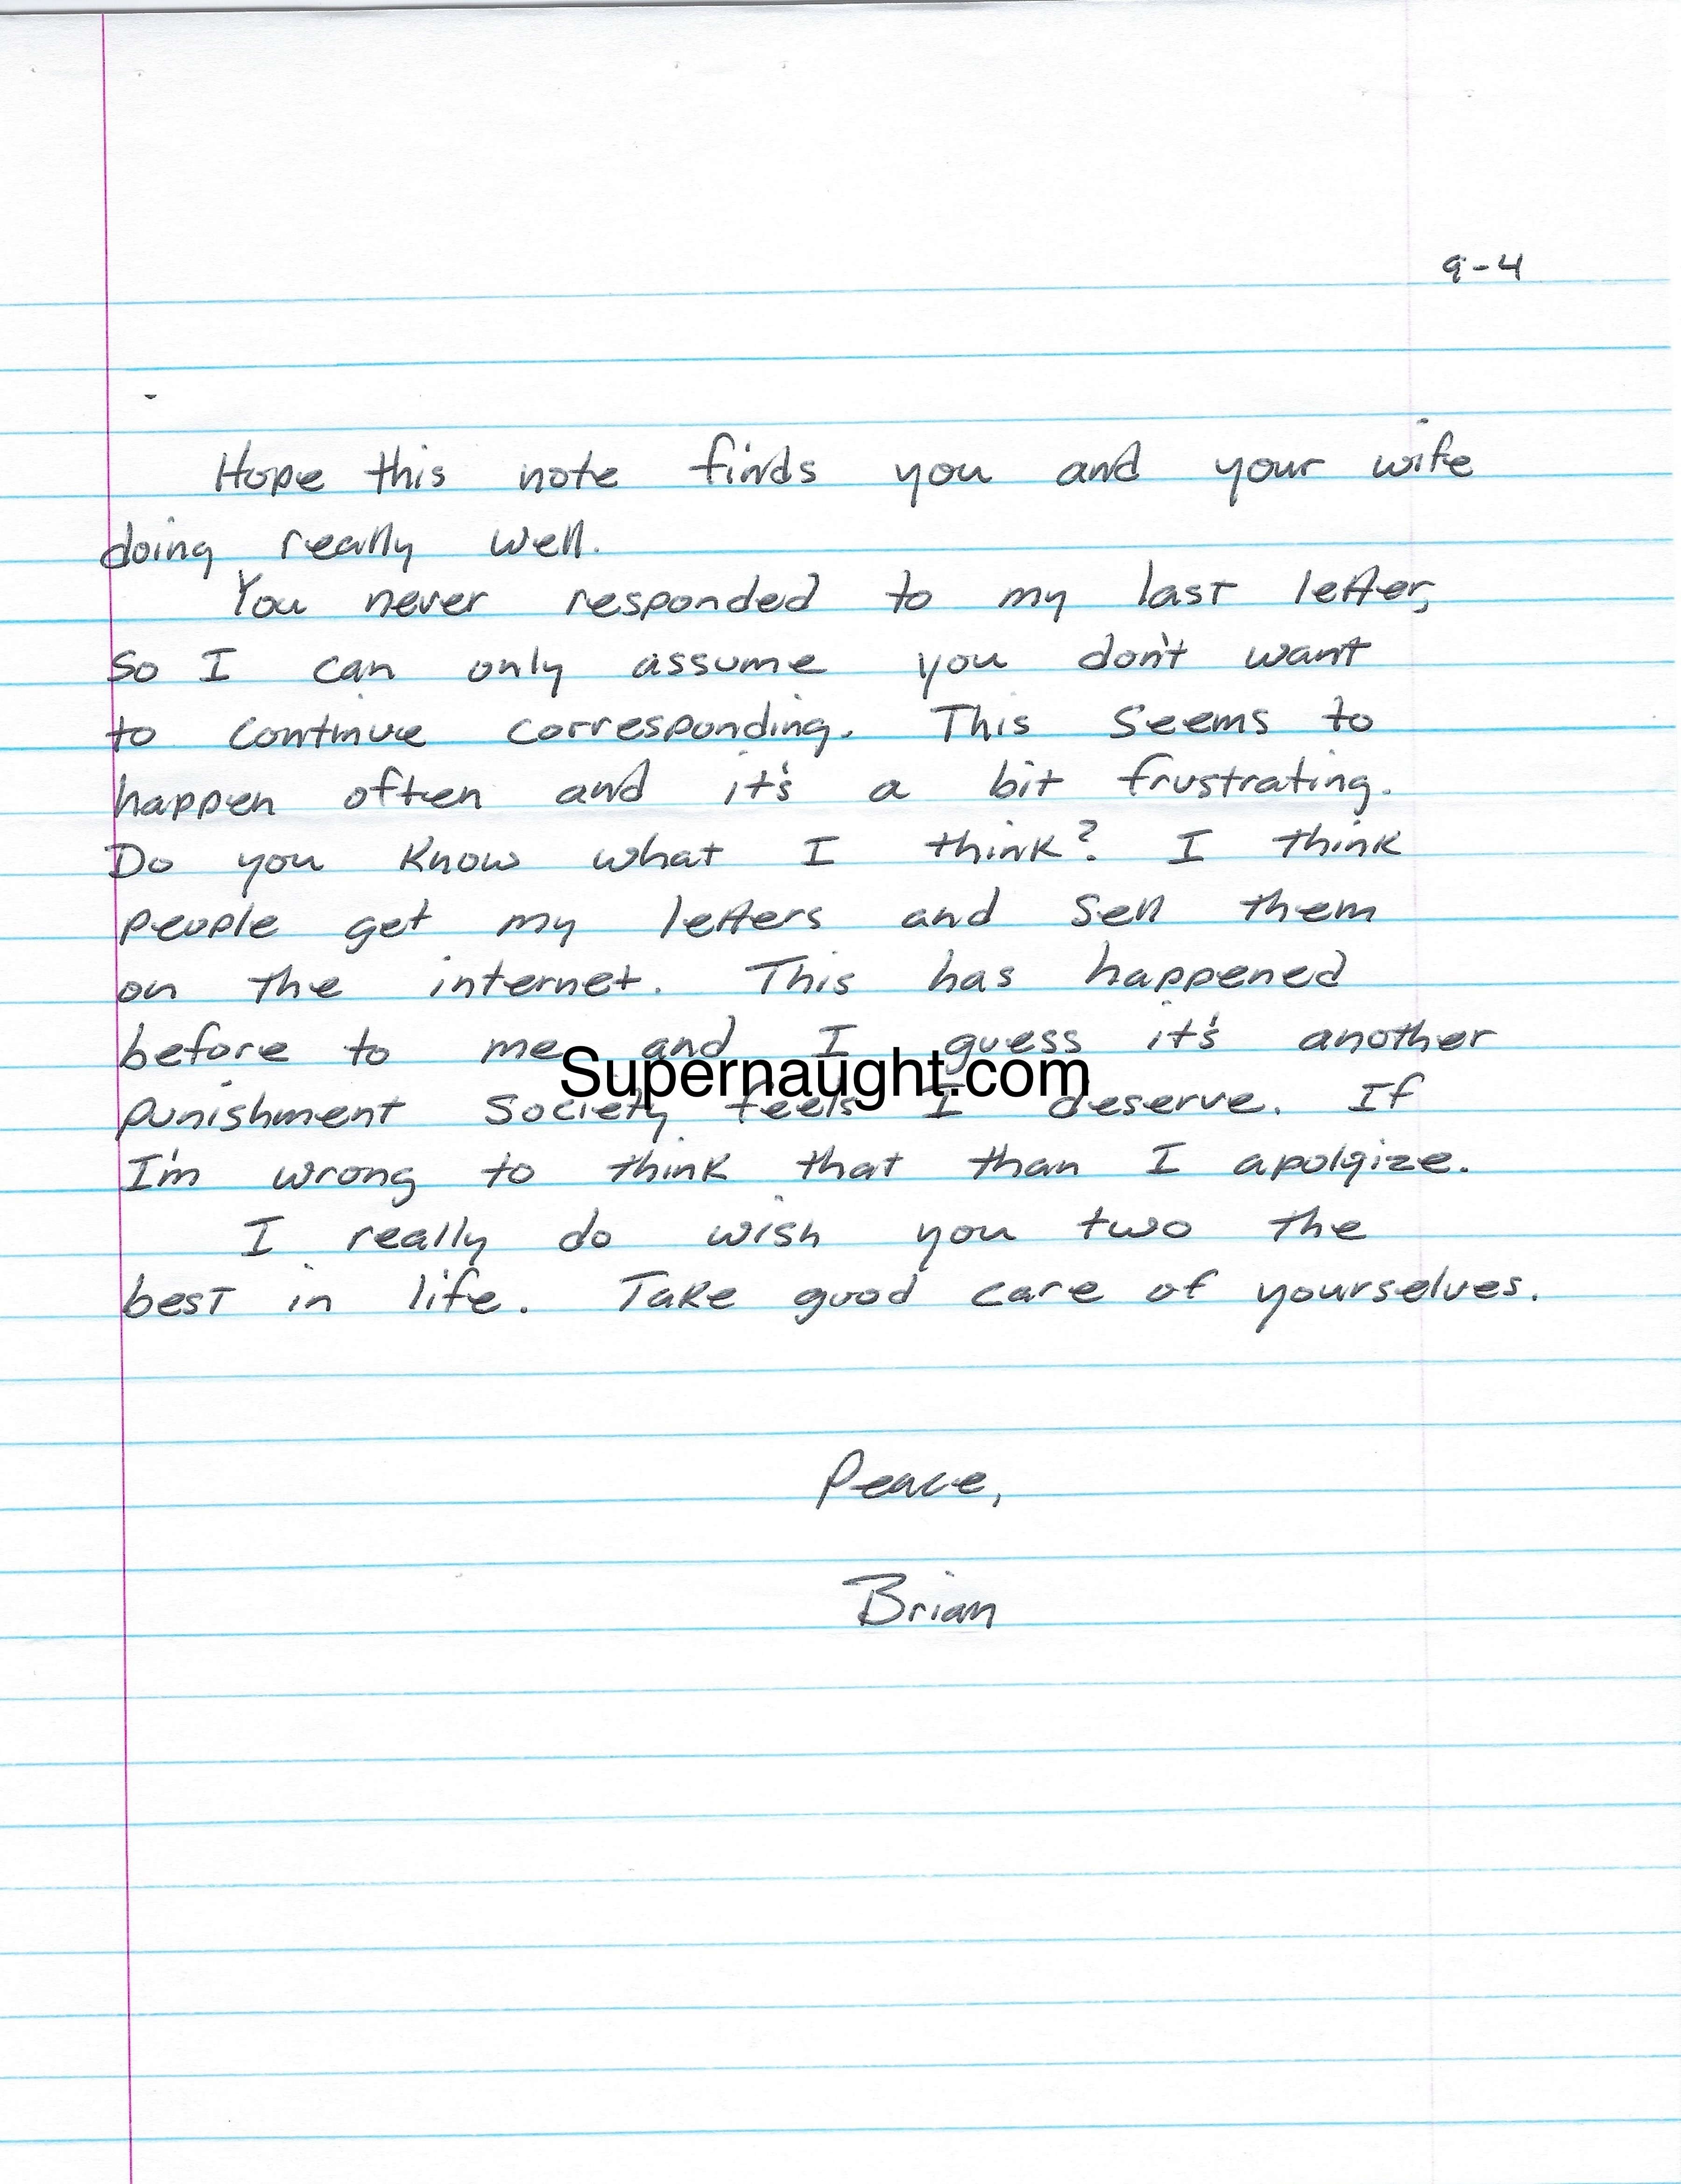 9-4
Hope this note finds you and your wife
doing really well.
You never responded to my last letter,
so I can only assume you don't want
to continue corresponding. This seems to
happen often and it's a bit frustrating.
Do you know what I think? I think
people get my letters and sell them
on the internet. This has happened
before to me and I guess it's another
Supernaught.com
punishment society feels I deserve. If
I'm wrong to think that than I apolgize.
I really do wish you two the
best in life. Take good care of yourselves.
Peace,
Brian